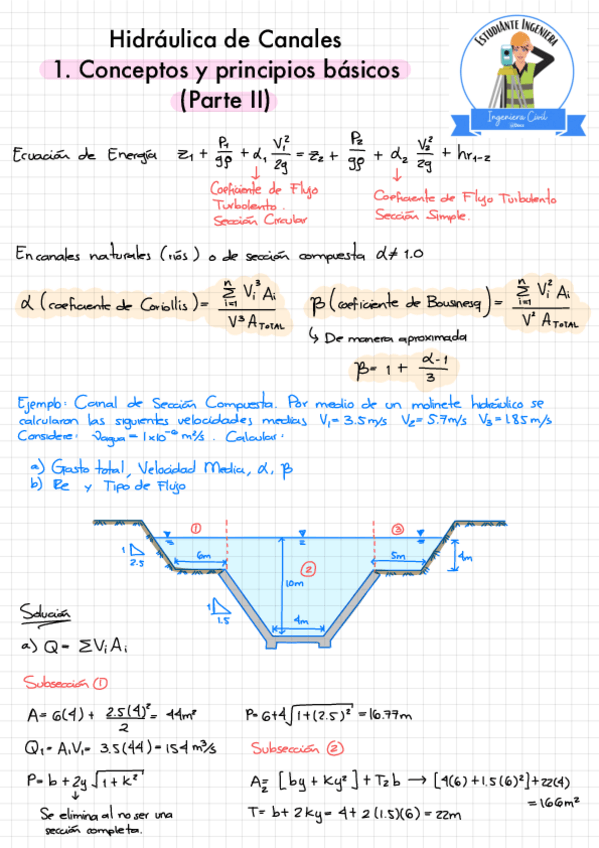 Hidráulica de Canales
1. Conceptos y principios básicos
(Parte II)
ESTUDIANTE INGENIERA
Ingeniera Civil
Ecuación de Energía z₁ + P₁/gρ + α₁ V₁²/2g = z₂ + P₂/gρ + α₂ V₂²/2g + hr₁₋₂
Coeficiente de Flujo
Turbolento.
Sección Circular
Coeficiente de Flujo Turbulento
Sección Simple.
En canales naturales (ríos) o de sección compuesta α ≠ 1.0
α (coeficiente de Coriollis) = Σⁿᵢ₌₁ Vᵢ³ Aᵢ / V³ A TOTAL
β (coeficiente de Bousinesq) = Σⁿᵢ₌₁ Vᵢ² Aᵢ / V² A TOTAL
↳ De manera aproximada
β = 1 + α-1/3
Ejemplo: Canal de Sección Compuesta. Por medio de un molinete hidráulico se
calcularon las siguientes velocidades medias V₁= 3.5m/s V₂= 5.7m/s V₃= 1.85 m/s
Considere: νagua = 1x10⁻⁶ m²/s. Calcular:
a) Gasto total, Velocidad Media, α, β
b) Re y Tipo de Flujo
① ③
1
2.5
6m
5m
4m
②
10m
1
1.5
4m
Solución
a) Q = ΣVᵢAᵢ
Subsección ①
A = 6(4) + 2.5(4)²/2 = 44m²
P = 6+4√1+(2.5)² = 16.77m
Q₁ = A₁V₁ = 3.5(44) = 154 m³/s
Subsección ②
P = b + 2y√1+k²
A₂ = [by + Ky²] + T₂b → [4(6)+1.5(6)²]+22(4)
= 166m²
Se elimina al no ser una
sección completa.
T = b + 2ky = 4 + 2(1.5)(6) = 22m